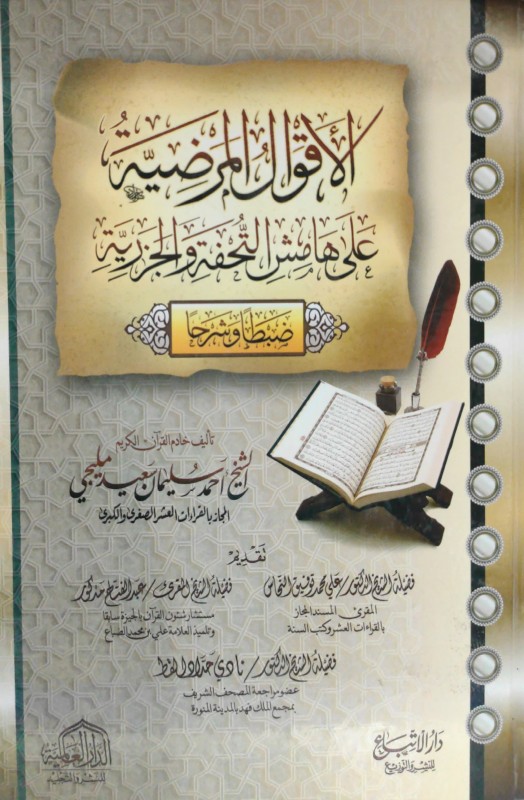 الأقوال المرضية
على هامش التحفة والجزرية
ضبطا وشرحا
تأليف خادم القرآن الكريم
الشيخ أحمد سليمان سعيد مليجي
المجاز بالقراءات العشر الصغرى والكبرى
تقديم
فضيلة الشيخ الدكتور/ علي محمد توفيق النحاس
المقرئ المسند المجاز
بالقراءات العشر وكتب السنة
فضيلة الشيخ المقرئ/ عبد الفتاح مدكور
مستشار شئون القرآن بالجيزة سابقا
وتلميذ العلامة علي بن محمد الضباع
فضيلة الشيخ الدكتور/ نادي حداد القط
عضو مراجعة المصحف الشريف
بمجمع الملك فهد بالمدينة المنورة
دار الاتباع
للنشر والتوزيع
الدار العالمية
للنشر والتعليم